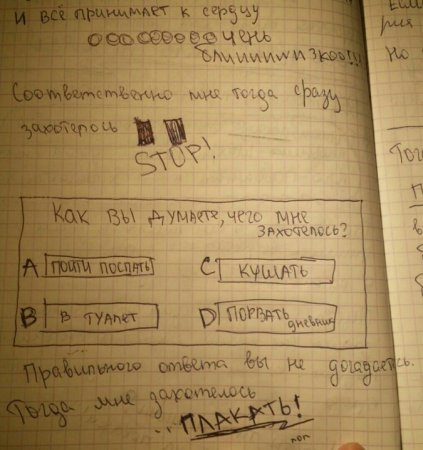 и всё принимает к сердцу
ооооооооочень
блииииизкоо!!!
Соответственно мне тогда сразу
захотелось
STOP!
Как вы думаете, чего мне
захотелось?
A пойти поспать
C кушать
B в туалет
D порвать дневник
Правильного ответа вы не догадаетесь.
Тогда мне захотелось
...ПЛАКАТЬ!
Но